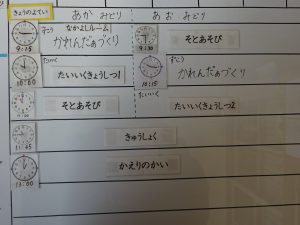 きょうのよてい
あか みどり
あお みどり
ずこう なかよしルーム
かれんだぁづくり
9:15
9:30
そとあそび
たいいく
たいいくきょうしつ1
10:00
ずこう
かれんだぁづくり
10:15
そとあそび
11:00
たいいく
たいいくきょうしつ2
きゅうしょく
11:45
かえりのかい
13:00